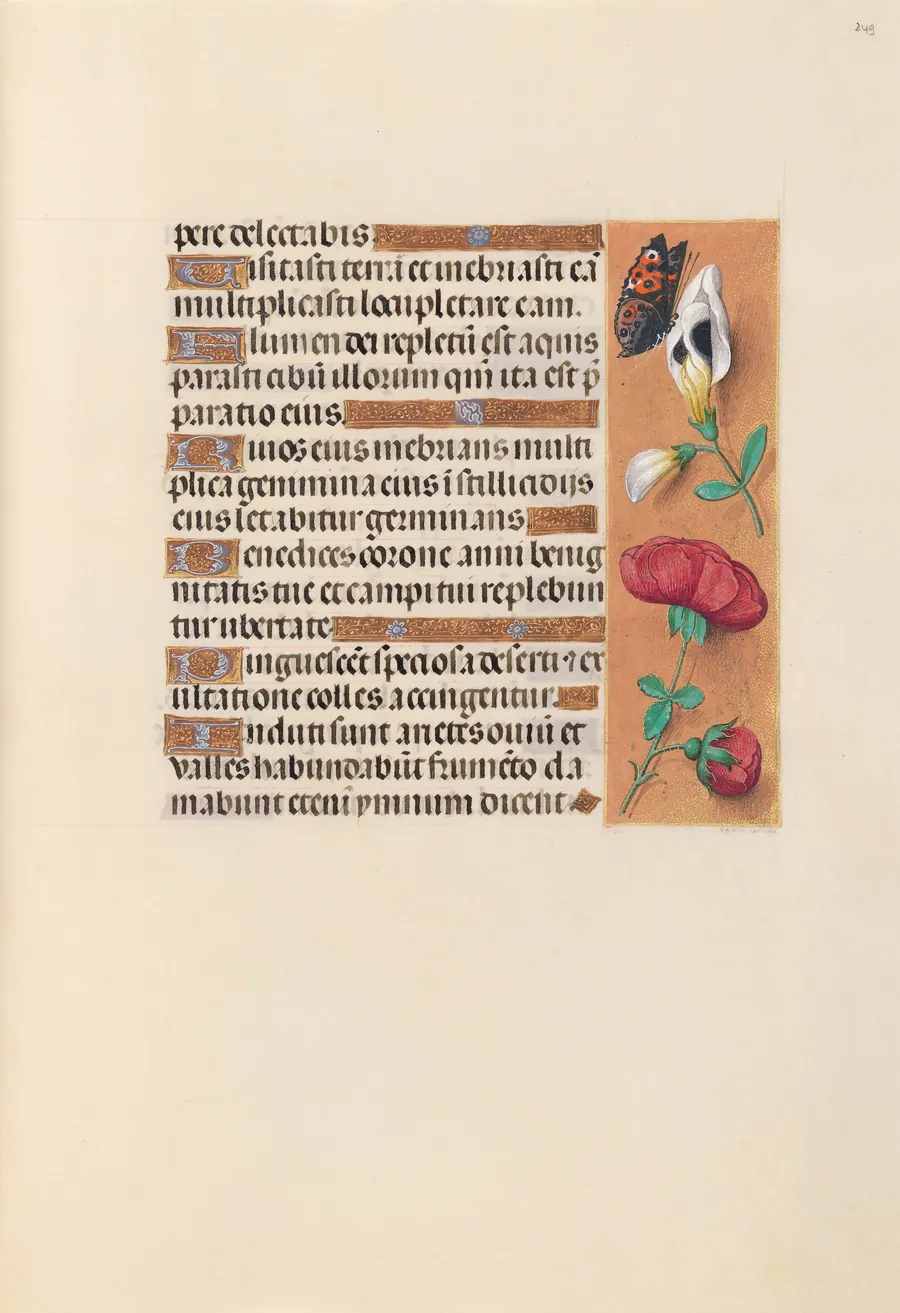 249
pere delectabis.
Uisitasti terrā et inebriasti eā
multiplicasti locupletare eam.
Flumen dei repletū est aquis
parasti cibū illorum qm̄ ita est p̄
paratio eius.
Riuos eius inebrians multi
plica genimina eius ī stillicidijs
eius letabitur germinans.
Benedices corone anni benig
nitatis tue et campi tui replebun
tur ubertate.
Pinguescēt speciosa deserti ⁊ ex
ultatione colles accingentur.
Induti sunt arietes ouiū et
valles habundabūt frumēto cla
mabunt eteni ymnum dicent